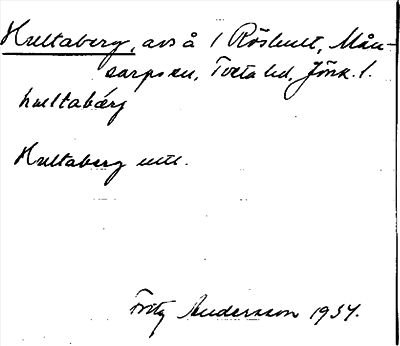 Hultaberg, avs å 1 Röshult, Mån-
sarps sn, Tveta hd, Jönk. l.
hultabärg
Hultaberg uttl.
Fritz Andersson 1934.